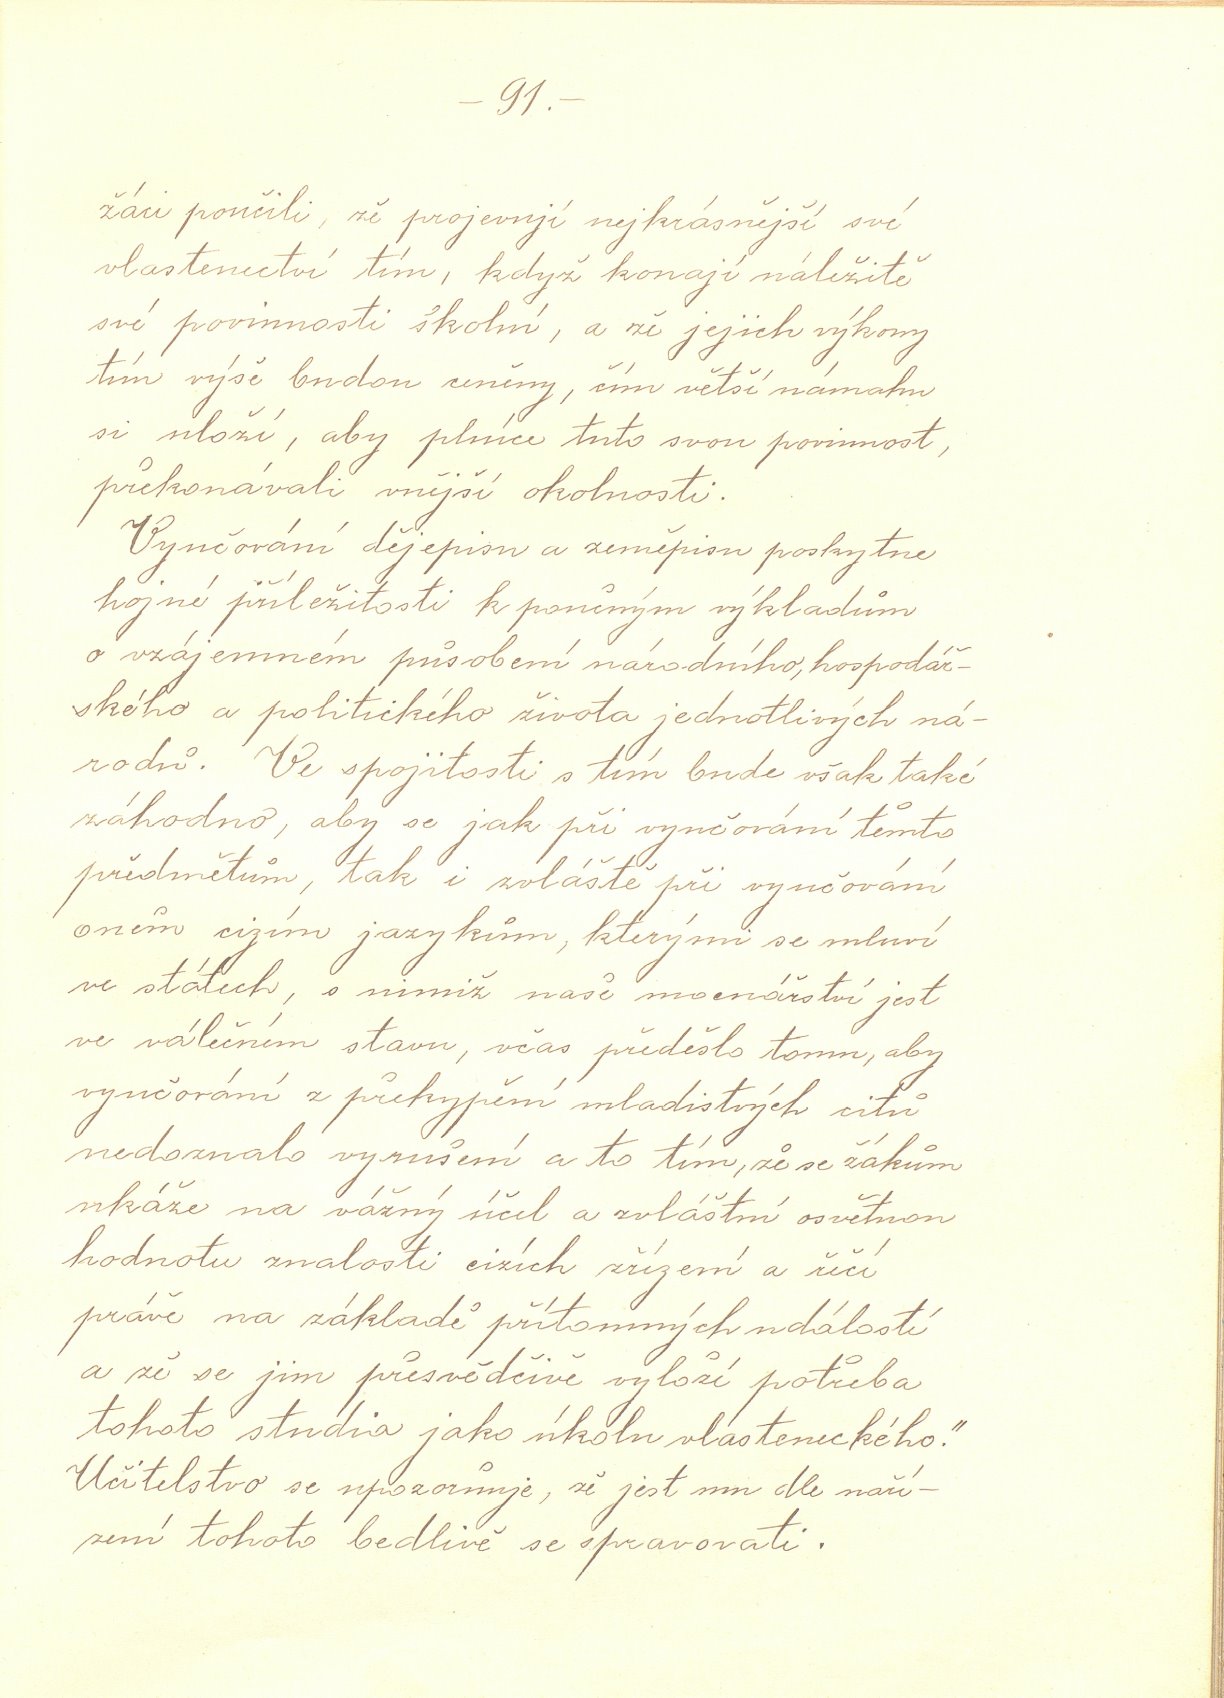 – 91. –
žáci poučili, že projevují nejkrásnější své
vlastenectví tím, když konají náležitě
své povinnosti školní, a že jejich výkony
tím výše budou ceněny, čím větší námahu
si uloží, aby plníce tuto svou povinnost,
překonávali vnější okolnosti.
Vyučování dějepisu a zeměpisu poskytne
hojné příležitosti k poučným výkladům
o vzájemném působení národního, hospodář-
ského a politického života jednotlivých ná-
rodů. Ve spojitosti s tím bude však také
záhodno, aby se jak při vyučování těmto
předmětům, tak i zvláště při vyučování
oněm cizím jazykům, kterými se mluví
ve státech, s nimiž naše mocnářství jest
ve válečném stavu, včas předešlo tomu, aby
vyučování z překypění mladistvých citů
nedoznalo vyrušení a to tím, že se žákům
ukáže na vážný účel a zvláštní osvětnou
hodnotu znalosti cizích zřízení a řečí
právě na základě přítomných událostí
a že se jim přesvědčivě vyloží potřeba
tohoto studia jako úkolu vlasteneckého."
Učitelstvo se upozorňuje, že jest mu dle naří-
zení tohoto bedlivě se spravovati.